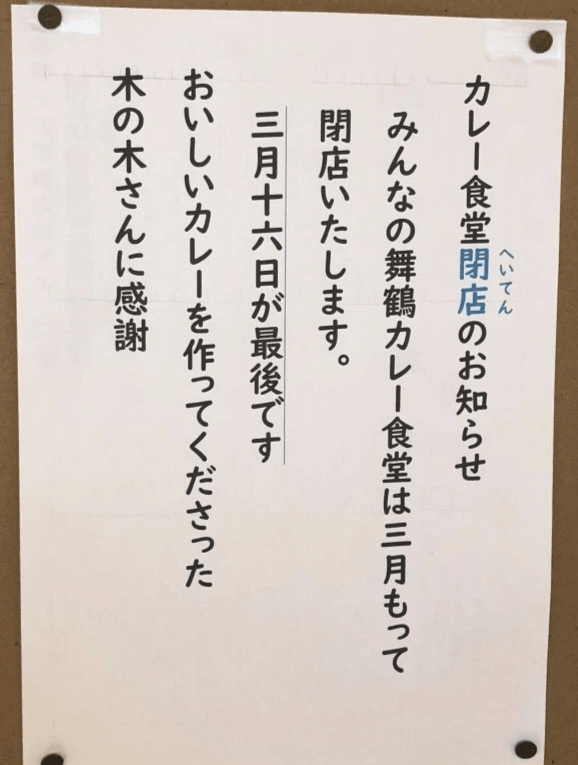 カレー食堂閉店のお知らせ
へいてん
みんなの舞鶴カレー食堂は三月もって
閉店いたします。
三月十六日が最後です
おいしいカレーを作ってくださった
木の木さんに感謝